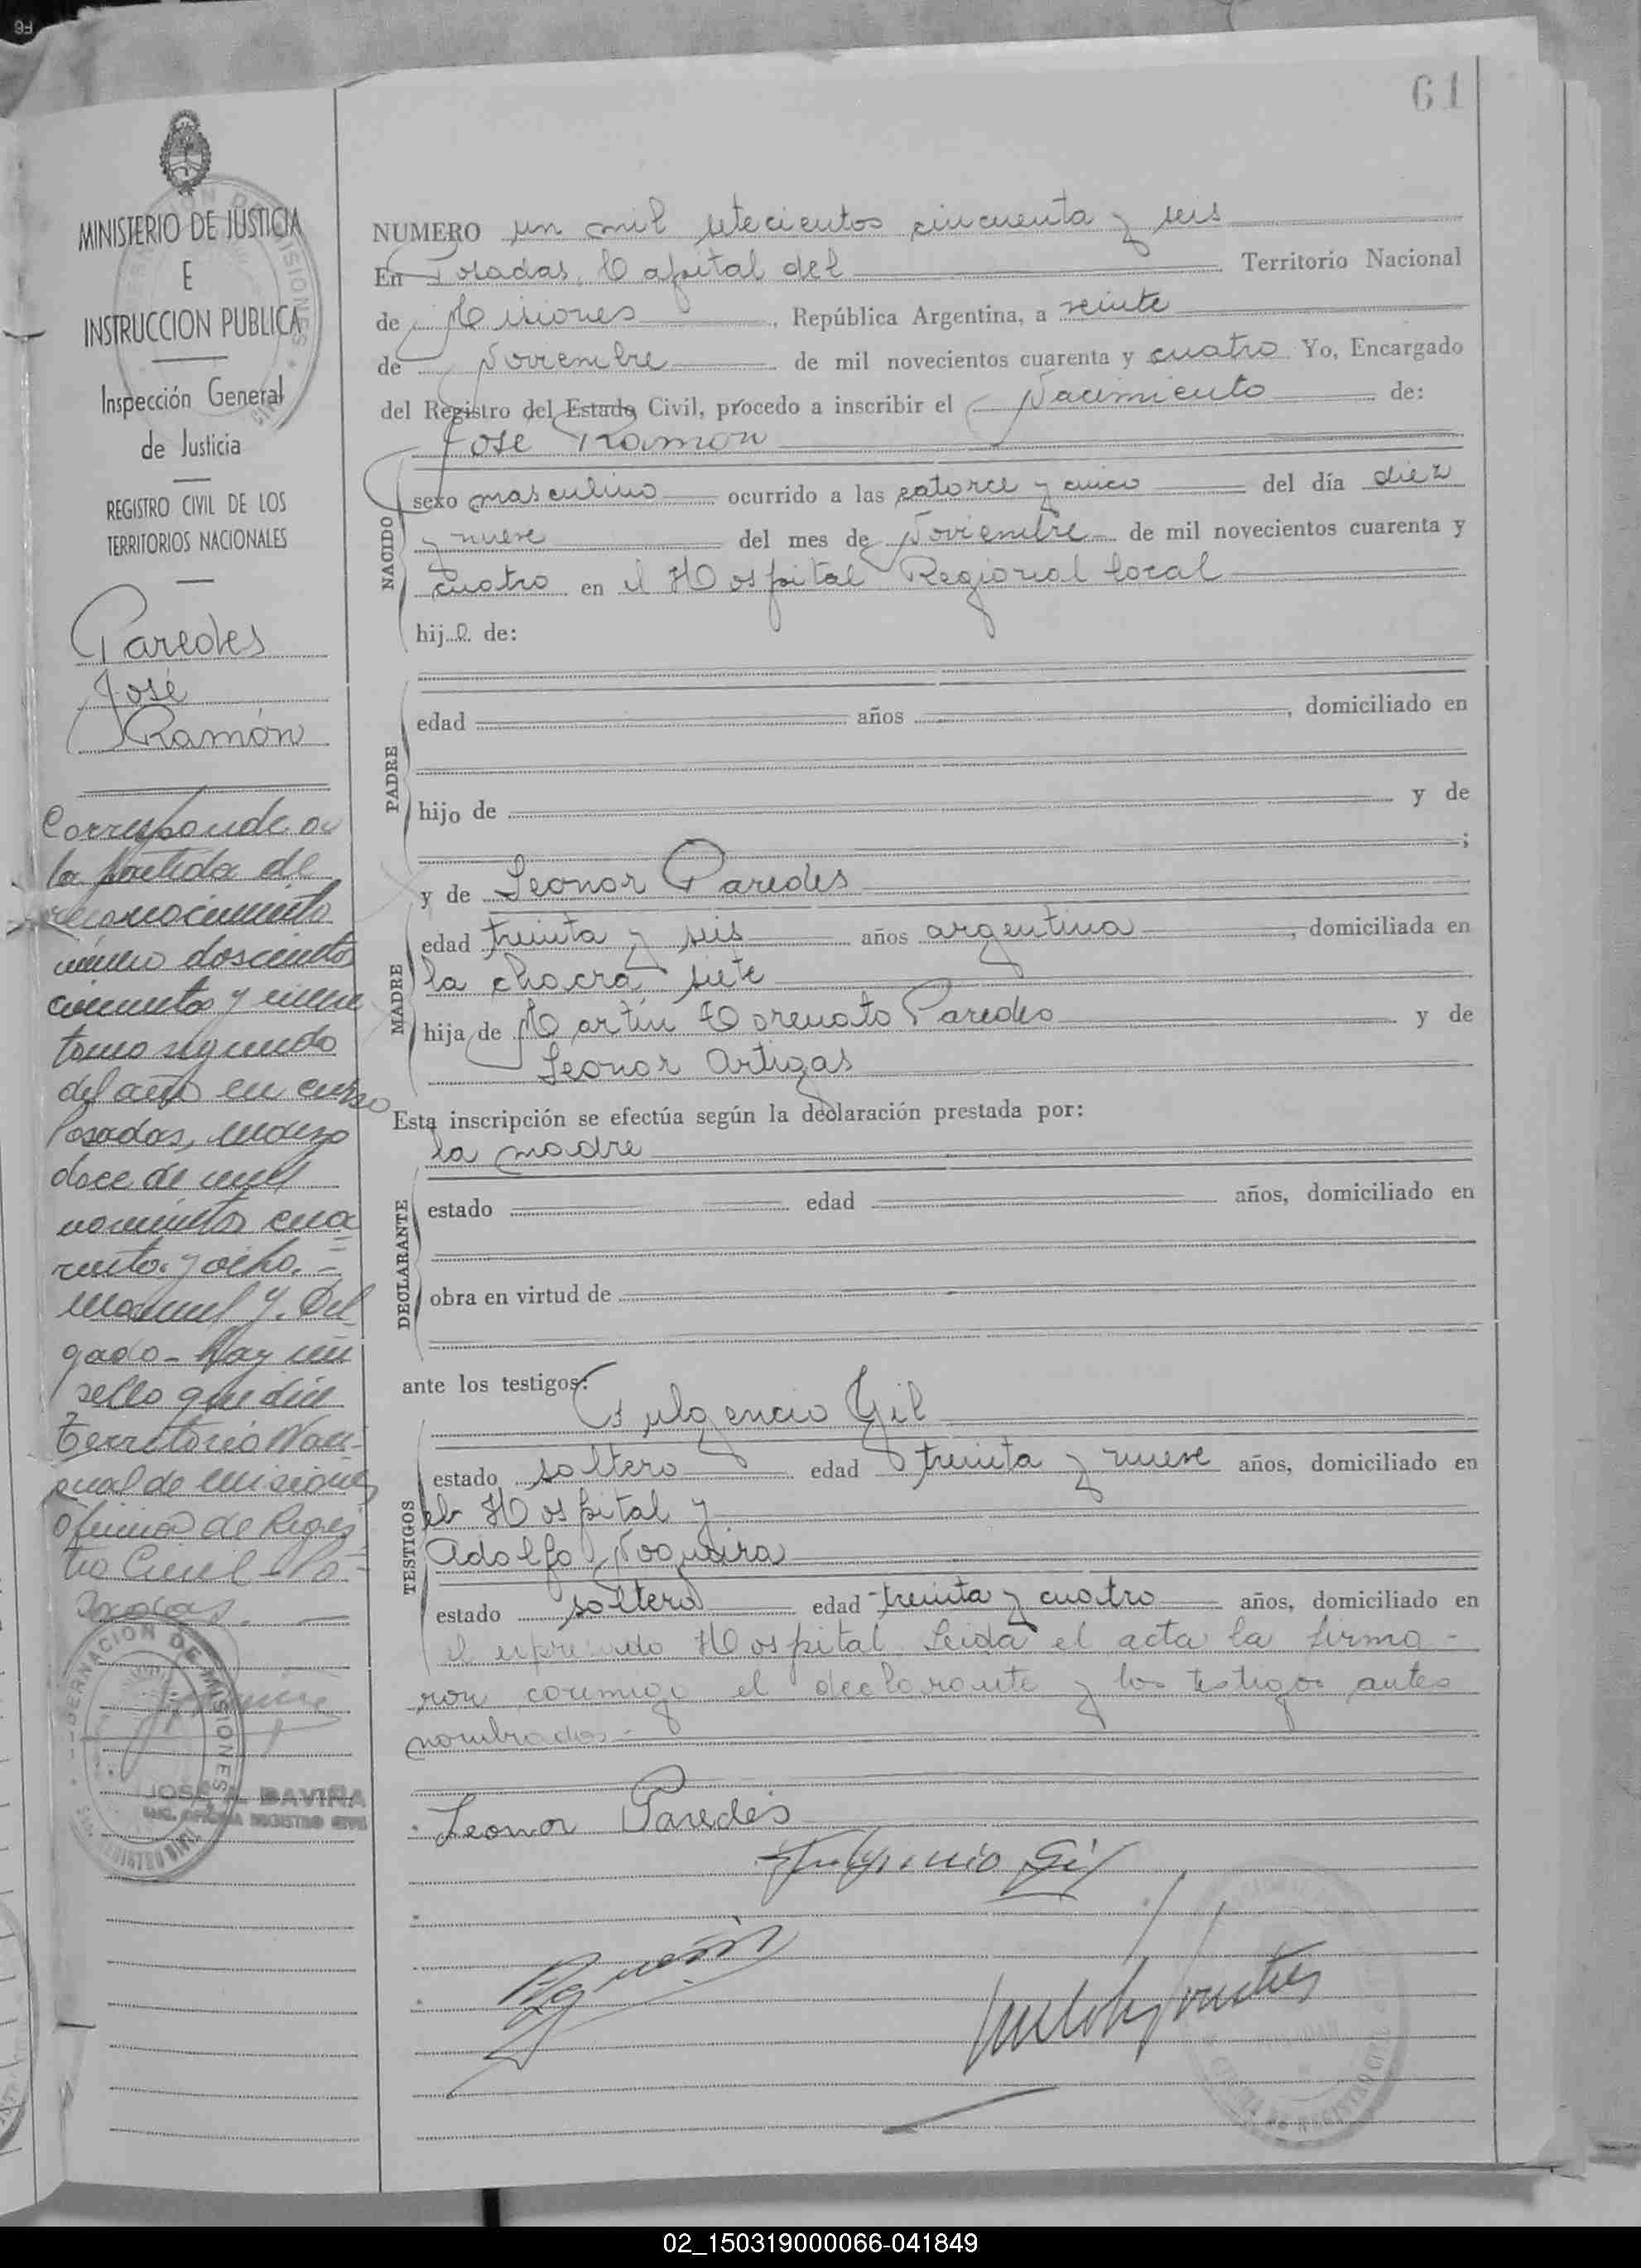 61
MINISTERIO DE JUSTICIA
E
INSTRUCCION PUBLICA
Inspección General
de Justicia
REGISTRO CIVIL DE LOS
TERRITORIOS NACIONALES
Paredes
José
Ramón
Corresponde a
la partida de
reconocimiento
número doscientos
cincuenta y nueve
tomo segundo
del año en curso
Posadas, marzo
doce de mil
novecientos cua
renta y ocho. =
Manuel Y. Del
gado - Hay un
sello que dice
Territorio Naci-
onal de Misiones
Oficina de Regis
tro Civil - Po-
sadas. —
GOBERNACION DE MISIONES
JOSE BAVIÑA
ENC. OFICINA REGISTRO CIVIL
NUMERO un mil setecientos cincuenta y seis
En Posadas, Capital del Territorio Nacional
de Misiones, República Argentina, a veinte
de Noviembre de mil novecientos cuarenta y cuatro Yo, Encargado
del Registro del Estado Civil, procedo a inscribir el Nacimiento de:
Jose Ramon
NACIDO
sexo masculino ocurrido a las catorce y cinco del día diez
y nueve del mes de Noviembre de mil novecientos cuarenta y
cuatro en el Hospital Regional local
hijo de:
PADRE
edad años , domiciliado en
hijo de y de
;
y de Leonor Paredes
MADRE
edad treinta y seis años argentina , domiciliada en
la chacra siete
hija de Martin Morenato Paredes y de
Leonor Artigas
Esta inscripción se efectúa según la declaración prestada por:
la madre
DECLARANTE
estado edad años, domiciliado en
obra en virtud de
ante los testigos:
Fulgencio Gil
TESTIGOS
estado soltero edad treinta y nueve años, domiciliado en
el Hospital y
Adolfo Nogueira
estado soltero edad treinta y cuatro años, domiciliado en
el expresado Hospital. Leida el acta la firma-
ron conmigo el declarante y los testigos antes
nombrados.-
Leonor Paredes
Fulgencio Gil
02_150319000066-041849